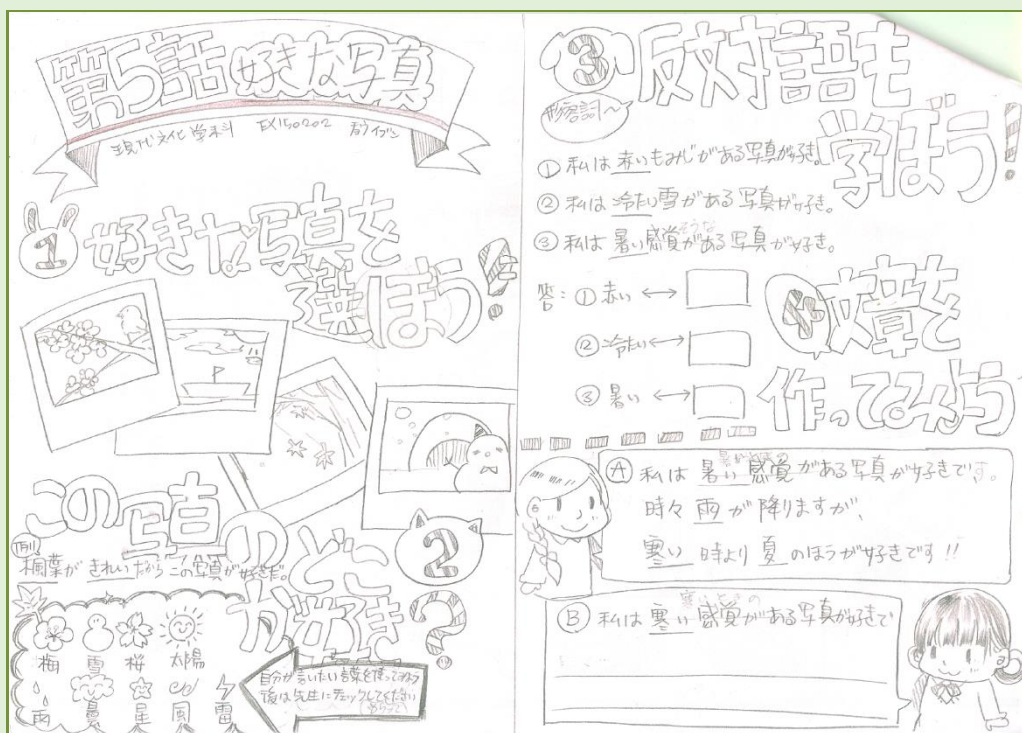 第5話 好きな写真
現代文化学科 EX150202
1 好きな写真を
選ぼう!
この写真の
どこ
が好き?
2
例
桐葉がきれいだからこの写真が好きだ。
梅 雪 桜 太陽
雨 曇 星 風 雷
自分が言いたい言葉を使ってみよう
後は先生にチェックしてください
3 反対語も
学ぼう!
形容詞〜
① 私は赤いもみじがある写真が好き。
② 私は冷たい雪がある写真が好き。
そうな
③ 私は暑い感覚がある写真が好き。
答: ① 赤い ↔
② 冷たい ↔
③ 暑い ↔
4 文章を
作ってみよう
Ⓐ 私は暑い感覚がある写真が好きです。
時々雨が降りますが、
寒い時より夏のほうが好きです!!
Ⓑ 私は寒い感覚がある写真が好きで